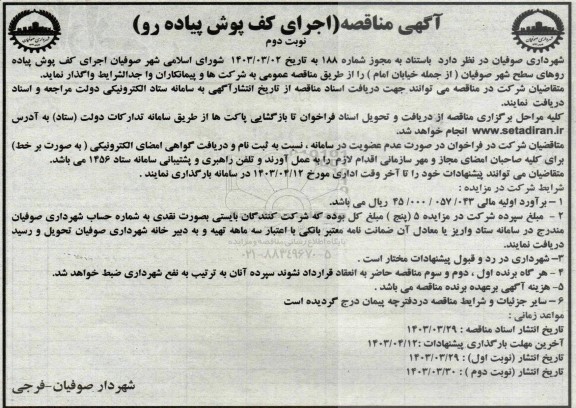 آگهی مناقصه(اجرای کف پوش پیاده رو)
نوبت دوم
شهرداری صوفیان در نظر دارد باستناد به مجوز شماره ۱۸۸ به تاریخ ۱۴۰۳/۰۳/۰۲ شورای اسلامی شهر صوفیان اجرای کف پوش پیاده
روهای سطح شهر صوفیان ( از جمله خیابان امام ) را از طریق مناقصه عمومی به شرکت ها و پیمانکاران واجدالشرایط واگذار نماید.
متقاضیان شرکت در مناقصه می توانند جهت دریافت اسناد مناقصه از تاریخ انتشارآگهی به سامانه ستاد الکترونیکی دولت مراجعه و اسناد
دریافت نمایند.
کلیه مراحل برگزاری مناقصه از دریافت و تحویل اسناد فراخوان تا بازگشایی پاکت ها از طریق سامانه تدارکات دولت (ستاد) به آدرس
www.setadiran.ir انجام خواهد شد.
متاقضیان شرکت در فراخوان در صورت عدم عضویت در سامانه ، نسبت به ثبت نام و دریافت گواهی امضای الکترونیکی ( به صورت بر خط)
برای کلیه صاحبان امضای مجاز و مهر سازمانی اقدام لازم را به عمل آورند و تلفن راهبری و پشتیبانی سامانه ستاد ۱۴۵۶ می باشد.
متقاضیان می توانند پیشنهادات خود را تا آخر وقت اداری مورخ ۱۴۰۳/۰۴/۱۲ در سامانه بارگذاری نمایند .
شرایط شرکت در مزایده :
۱– برآورد اولیه مالی ۰۴۳/ ۰۵۷/ ۰۰۰/ ۴۵ ریال می باشد.
۲ - مبلغ سپرده شرکت در مزایده ۵ (پنج ) مبلغ کل بوده که شرکت کنندگان بایستی بصورت نقدی به شماره حساب شهرداری صوفیان
مندرج در سامانه ستاد واریز یا معادل آن ضمانت نامه معتبر بانکی با اعتبار سه ماهه تهیه و به دبیر خانه شهرداری صوفیان تحویل و رسید
دریافت نمایند.
۳–شهرداری در رد و قبول پیشنهادات مختار است .
۴- هر گاه برنده اول ، دوم و سوم مناقصه حاضر به انعقاد قرارداد نشوند سپرده آنان به ترتیب به نفع شهرداری ضبط خواهد شد.
۵- هزینه آگهی برعهده برنده مناقصه می باشد .
۶– سایر جزئیات و شرایط مناقصه دردفترچه پیمان درج گردیده است
مواعد زمانی :
تاریخ انتشار اسناد مناقصه : ۱۴۰۳/۰۳/۲۹
آخرین مهلت بارگذاری پیشنهادات :۱۴۰۳/۰۴/۱۲
تاریخ انتشار (نوبت اول) : ۱۴۰۳/۰۳/۲۹
تاریخ انتشار (نوبت دوم ) : ۱۴۰۳/۰۳/۳۰
شهردار صوفیان-فرجی